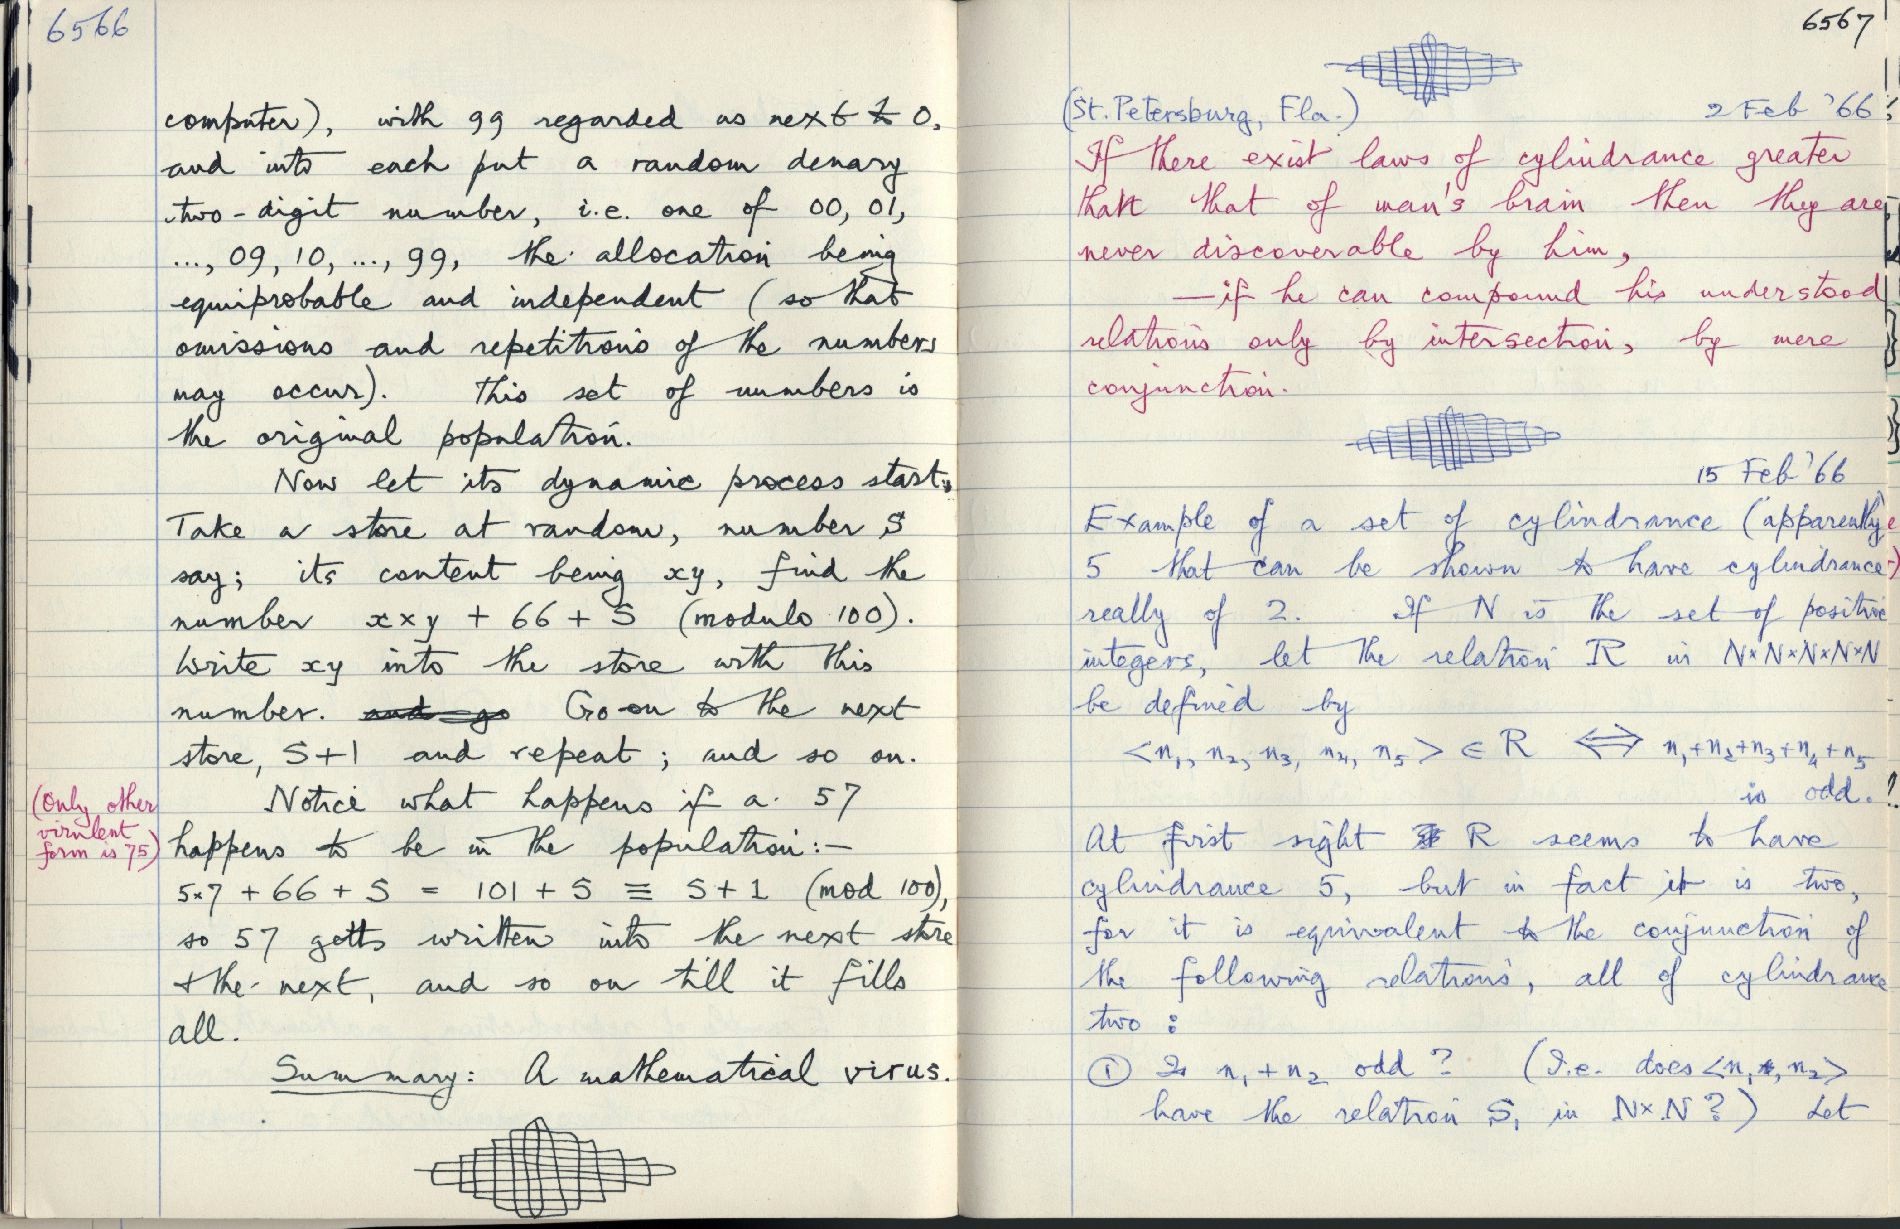 6566
computer), with 99 regarded as next to 0,
and into each put a random denary
two-digit number, i.e. one of 00, 01,
..., 09, 10, ..., 99, the allocation being
equiprobable and independent (so that
omissions and repetitions of the numbers
may occur). This set of numbers is
the original population.
Now let its dynamic process start.
Take a store at random, number S
say; its content being xy, find the
number x×y + 66 + S (modulo 100).
Write xy into the store with this
number. and go Go on to the next
store, S+1 and repeat; and so on.
Notice what happens if a 57
(Only other
virulent
form is 75)
happens to be in the population:—
5×7 + 66 + S = 101 + S ≡ S+1 (mod 100),
so 57 getts written into the next store
+ the next, and so on till it fills
all.
Summary: A mathematical virus.
6567
(St. Petersburg, Fla.) 2 Feb '66
If there exist laws of cylindrance greater
than that of man's brain then they are
never discoverable by him,
—if he can compound his understood
relations only by intersection, by mere
conjunction.
15 Feb '66
Example of a set of cylindrance (apparently)
5 that can be shown to have cylindrance
really of 2. If N is the set of positive
integers, let the relation R in N×N×N×N×N
be defined by
<n₁, n₂, n₃, n₄, n₅> ∈ R ⟺ n₁+n₂+n₃+n₄+n₅
is odd.
At first sight R seems to have
cylindrance 5, but in fact it is two,
for it is equivalent to the conjunction of
the following relations, all of cylindrance
two:
① Is n₁+n₂ odd? (I.e. does <n₁, n₂>
have the relation S₁ in N×N?) Let